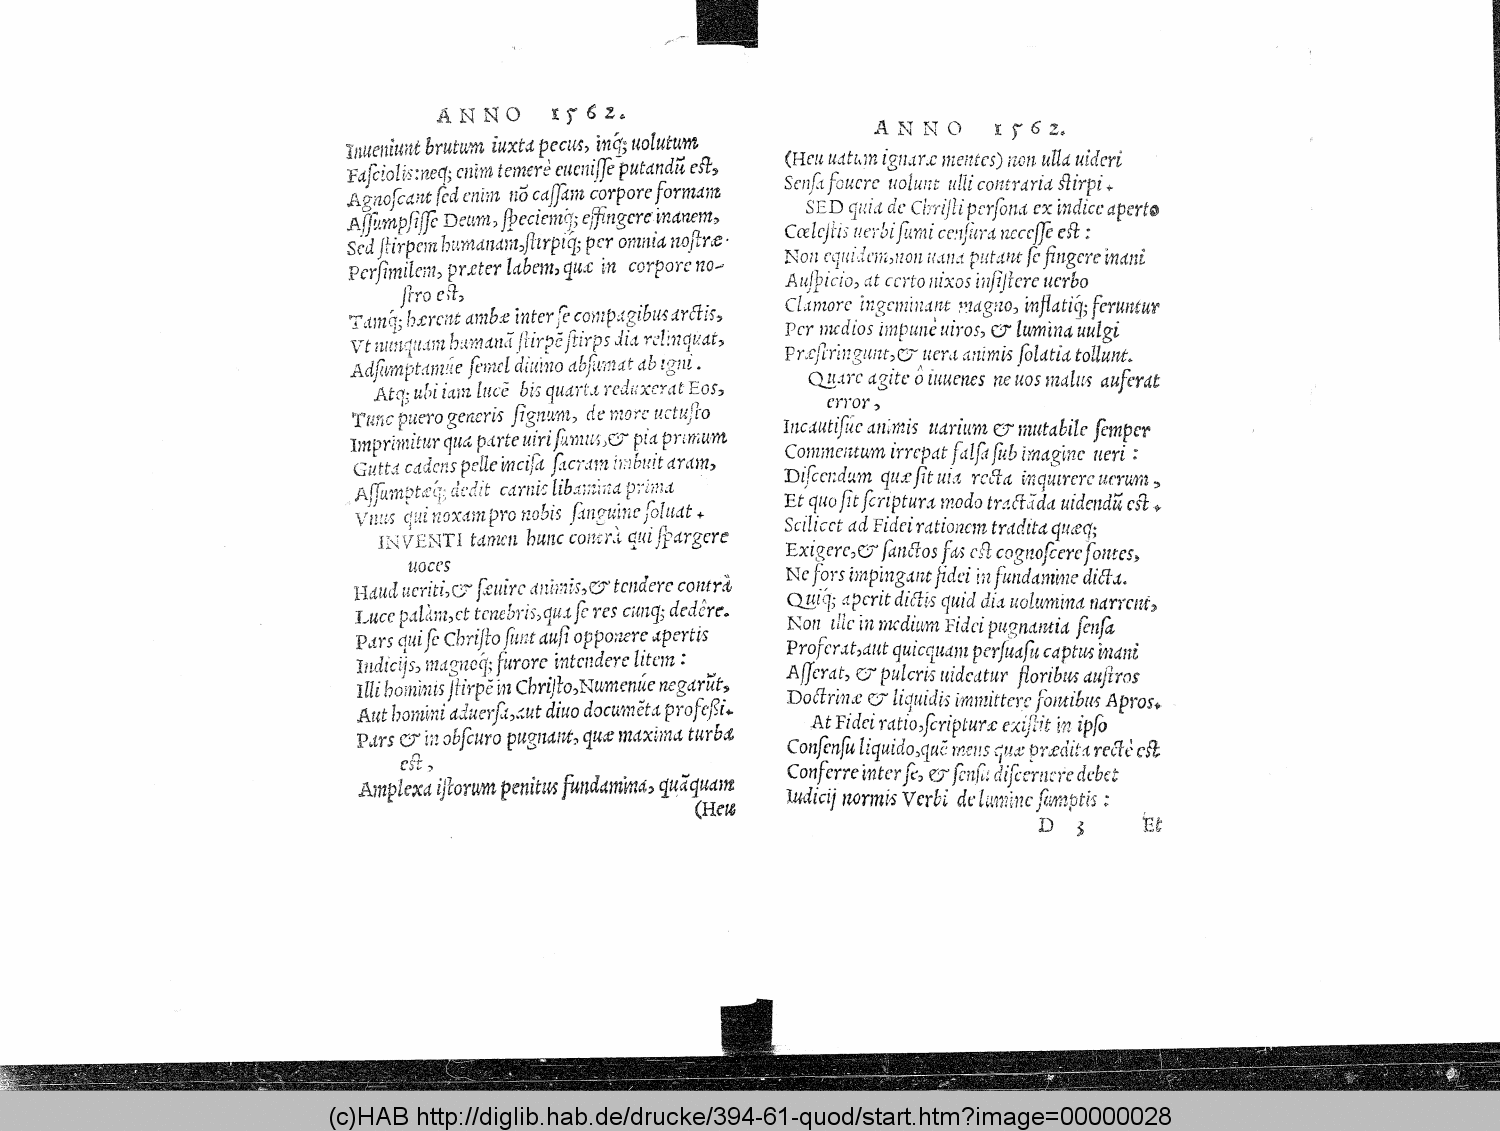 ANNO 1562.
Inueniunt brutum iuxta pecus, inq́; uolutum
Faſciolis: neq; enim temerè eueniſſe putandũ eſt,
Agnoſcant ſed enim nõ caſſam corpore formam
Aſſumpſiſſe Deum, ſpeciemq́; effingere inanem,
Sed ſtirpem humanam, ſtirpiq́; per omnia noſtræ.
Perſimilem, præter labem, quæ in corpore no-
ſtro eſt,
Tamq́; hærent ambæ inter ſe compagibus arctis,
Vt nunquam humanã ſtirpẽ ſtirps dia relinquat,
Adſumptamúe ſemel diuino abſumat ab igni.
Atq; ubi iam lucẽ bis quarta reduxerat Eos,
Tunc puero generis ſignum, de more uetuſto
Imprimitur qua parte uiri ſumus, & pia primum
Gutta cadens pelle inciſa ſacram imbuit aram,
Aſſumptæq́; dedit carnis libamina prima
Vnus qui noxam pro nobis ſanguine ſoluat.
INVENTI tamen hunc contrà qui ſpargere
uoces
Haud ueriti, & ſæuire animis, & tendere contrà
Luce palàm, et tenebris, qua ſe res cunq; dedêre.
Pars qui ſe Chriſto ſunt auſi opponere apertis
Indicijs, magnoq́; furore intendere litem:
Illi hominis ſtirpẽ in Chriſto, Numenúe negarũt,
Aut homini aduerſa, aut diuo documẽta profeßi.
Pars & in obſcuro pugnant, quæ maxima turba
eſt,
Amplexa iſtorum penitus fundamina, quãquam
(Heu
ANNO 1562.
(Heu uatum ignaræ mentes) non ulla uideri
Senſa fouere uolunt ulli contraria ſtirpi.
SED quia de Chriſti perſona ex indice aperto
Cœleſtis uerbi ſumi cenſura neceſſe eſt:
Non equidem, non uana putant ſe fingere inani
Auſpicio, at certo nixos inſiſtere uerbo
Clamore ingeminant magno, inflatiq́; feruntur
Per medios impunè uiros, & lumina uulgi
Præſtringunt, & uera animis ſolatia tollunt.
Quare agite ô iuuenes ne uos malus auferat
error,
Incautiſúe animis uarium & mutabile ſemper
Commentum irrepat falſa ſub imagine ueri:
Diſcendum quæ ſit uia recta inquirere uerum,
Et quo ſit ſcriptura modo tractãda uidendũ eſt.
Scilicet ad Fidei rationem tradita quæq;
Exigere, & ſanctos fas eſt cognoſcere fontes,
Ne fors impingant fidei in fundamine dicta.
Quiq́; aperit dictis quid dia uolumina narrent,
Non ille in medium Fidei pugnantia ſenſa
Proferat, aut quicquam perſuaſu captus inani
Aſſerat, & pulcris uideatur floribus auſtros
Doctrinæ & liquidis immittere fontibus Apros.
At Fidei ratio, ſcripturæ exiſtit in ipſo
Conſenſu liquido, quẽ mens quæ prædita rectè eſt
Conferre inter ſe, & ſenſu diſcernere debet
Iudicij normis Verbi de lumine ſumptis:
D 3 Et
(c)HAB http://diglib.hab.de/drucke/394-61-quod/start.htm?image=00000028